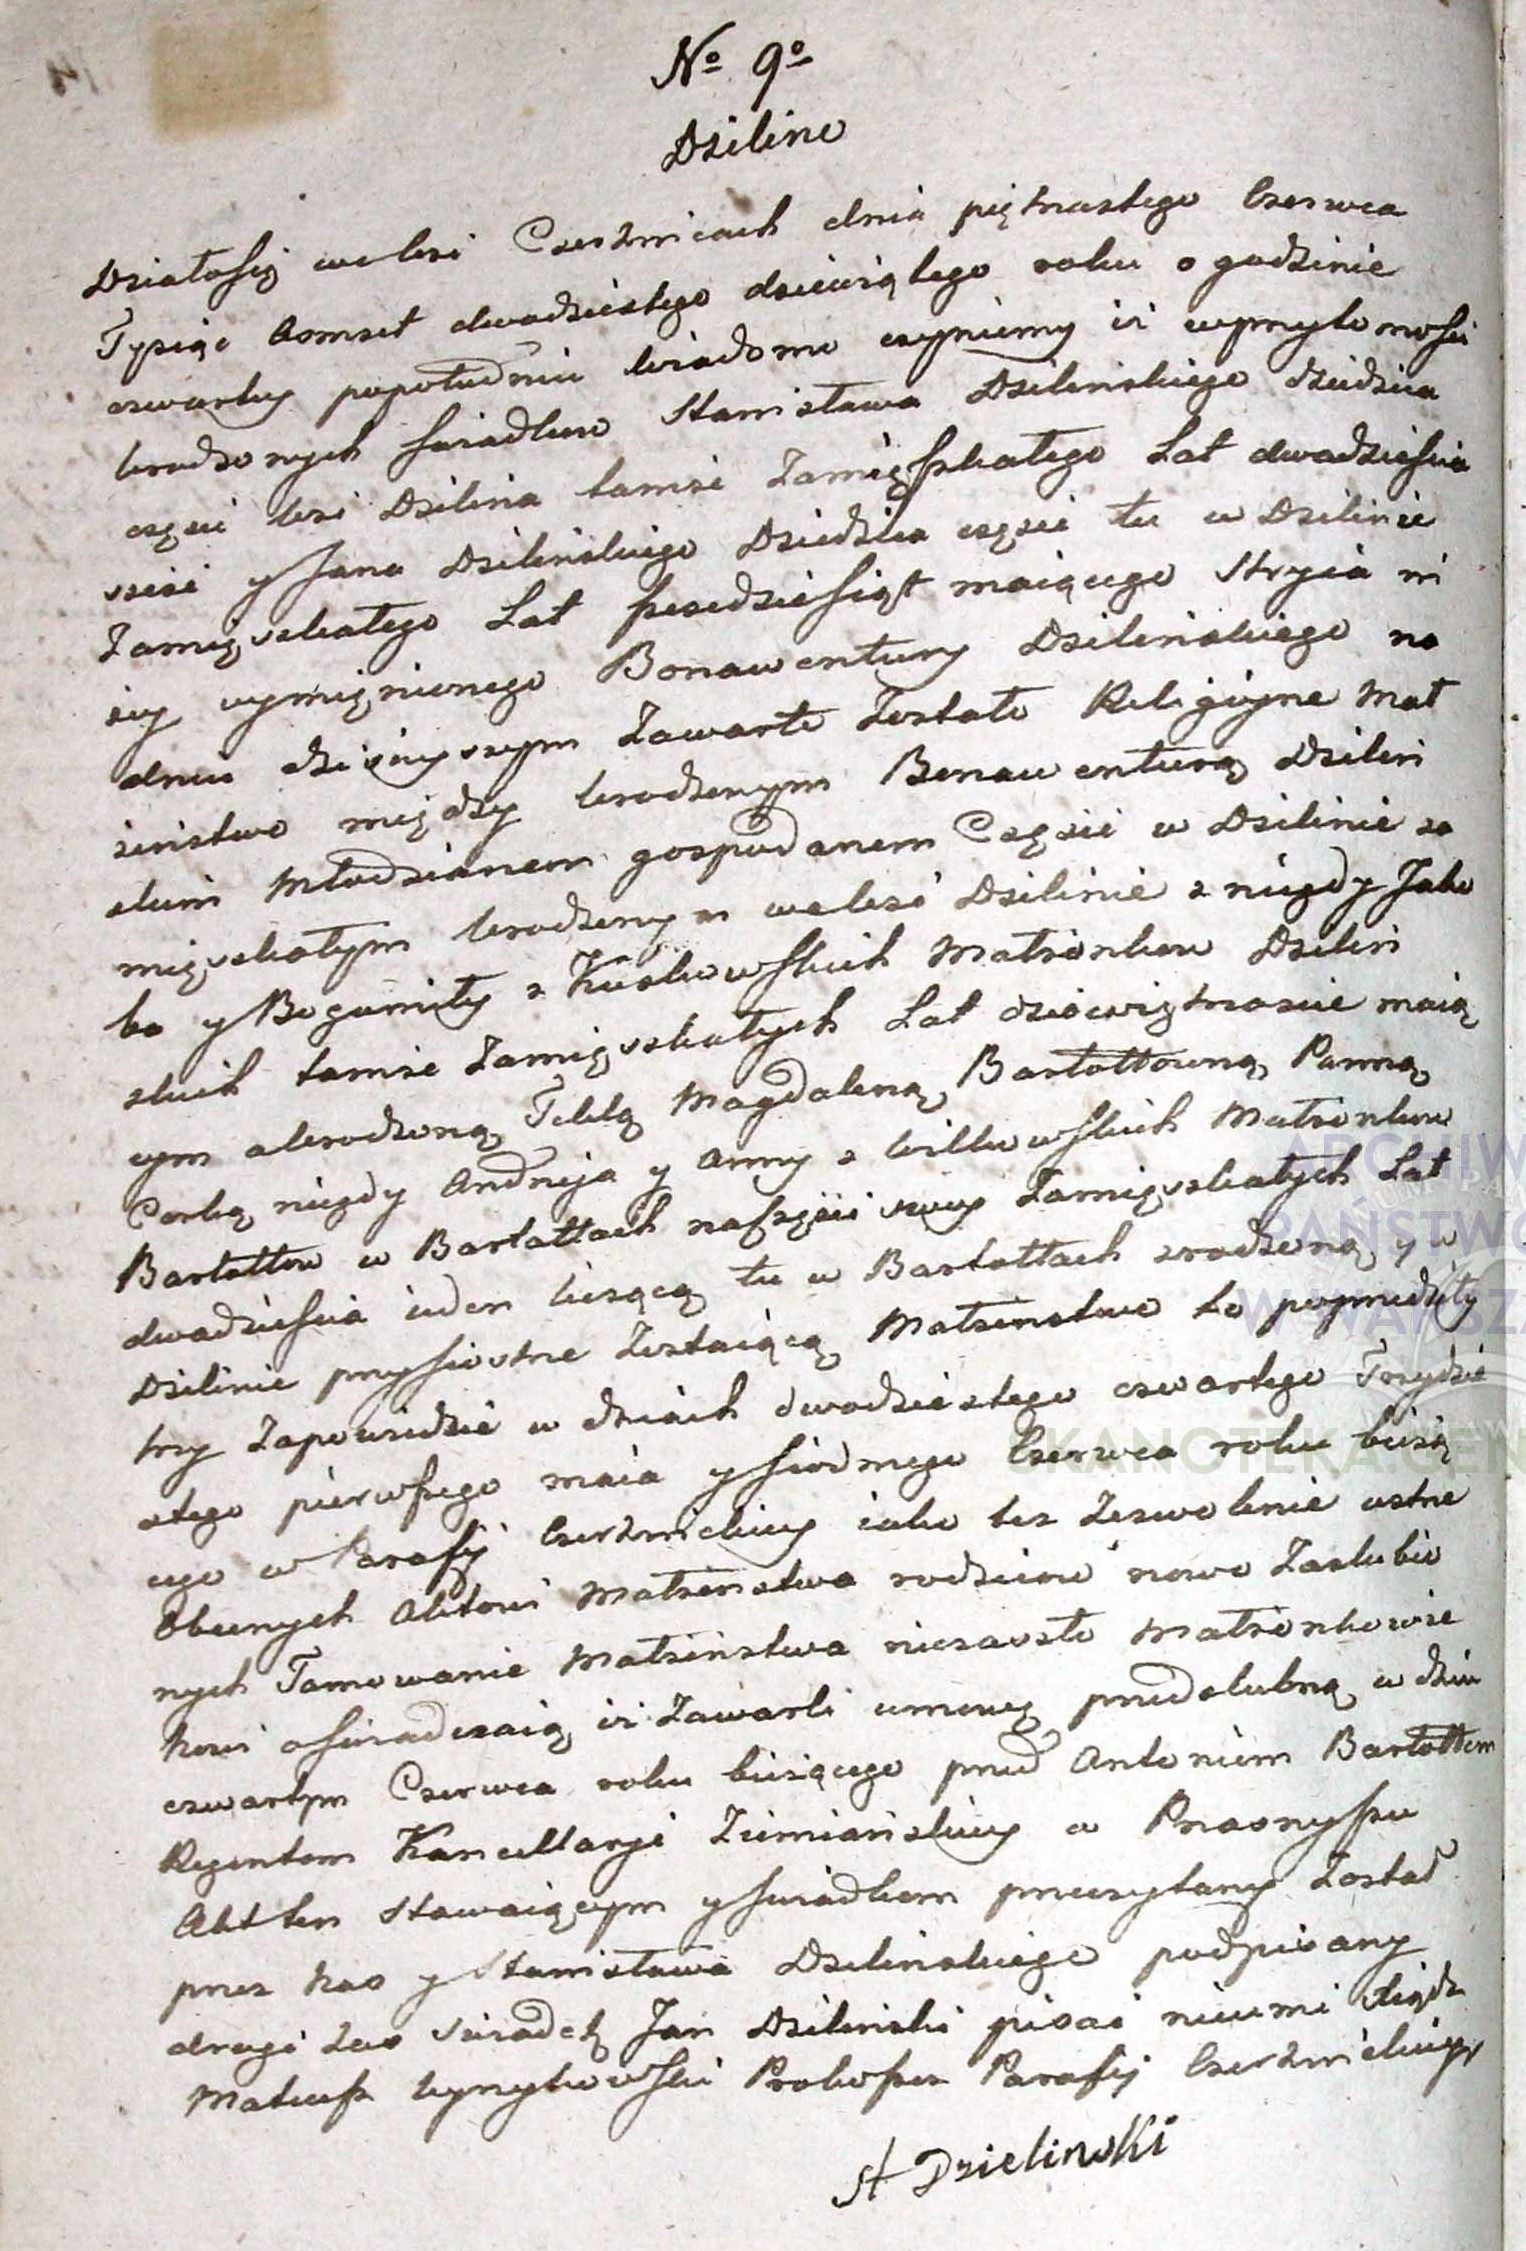 No 9o
Dzilino
Działosię wewsi Czerznicach dnia piętnastego Czerwca
Tysiąc osmset dwudziestego dziewiątego roku o godzinie
czwartey popołudniu wiadomo czyniemy iż wprzytomności
urodzonych swiadkow Stanisława Dzilińskiego dziedzica
części wsi Dzilina tamże Zamięszkałego Lat dwadzieścia
sześć y Jana Dzilińskiego Dziedzica części tu w Dzilinie
Zamięszkałego Lat szesdziesiąt maiącego Stryia ni
żey wymięnionego Bonawentury Dzilińskiego na
dniu dzisieyszym Zawarte Zostało Religiyne Mał
żeństwo między urodzonym Bonawenturą Dziliń
skim Młodzianem gospodarzem Części w Dzilinie za
mięszkałym urodzonym wewsi Dzilinie z niegdy Jaku
ba y Bogumiły z Kuskowskich Małżonkow Dziliń
skich tamże Zamięszkałych Lat dziewiętnascie maią
cym aurodzoną Teklą Magdaleną Bartołtowną Panną
Corką niegdy Andrzeja y Anny z Wilkowskich Małżonkow
Bartołtow w Bartołtach naczęści swey Zamięszkałych Lat
dwadzieścia ieden liczącą tu w Bartołtach zrodzoną y w
Dzilinie przysiostrze Zostaiącą Małżenstwo to poprzedziły
trzy Zapowiedzie w dniach dwudziestego czwartego Trzydzie
stego pierwszego maia y siodmego Czerwca roku bieżą
cego w Parafij Czerznickiey iako też Zezwolenie ustne
Obecnych Aktowi Małżenstwa rodzicow nowo Zaslubio
nych Tamowanie Małżeństwa niezaszło Małżonkowie
nowi oświadczaią iż Zawarli umowę przedślubną w dniu
czwartym Czerwca roku bieżącego przed Antonim Bartołtem
Rejentem Kancellaryi Ziemiańskiey w Przasnyszu
Akt ten Stawaiącym y swiadkom przeczytany Został
przez Nas y Stanisława Dzilińskiego podpisany
drugi zas świadek Jan Dziliński pisać nieumi Xiądz
Mateusz Proboszcz Parafij Czerznickiey
St Dzielinski
ARCHIWUM
PAŃSTWO
W WARSZA
SKANOTEKA.GEN